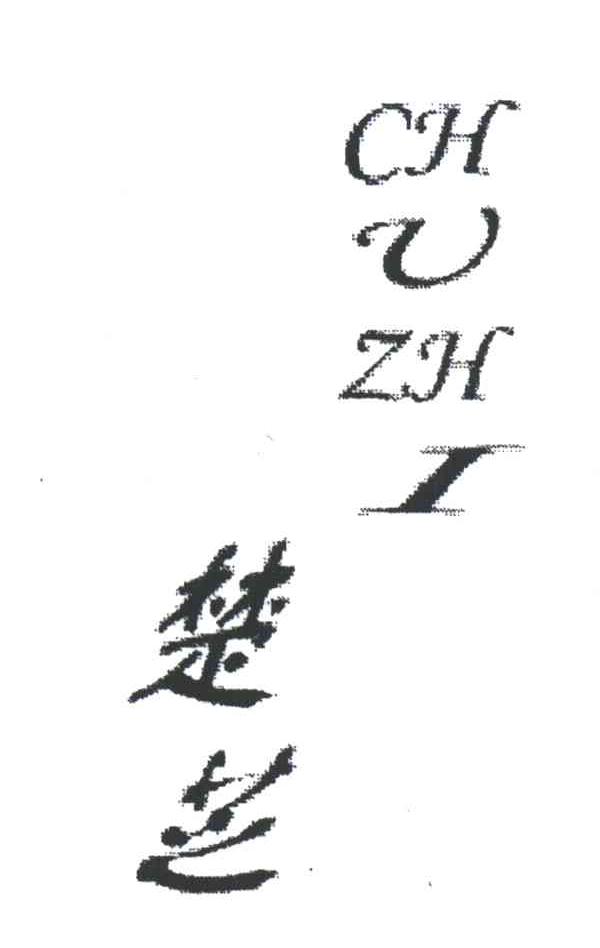 CH
U
ZH
I
楚
芝